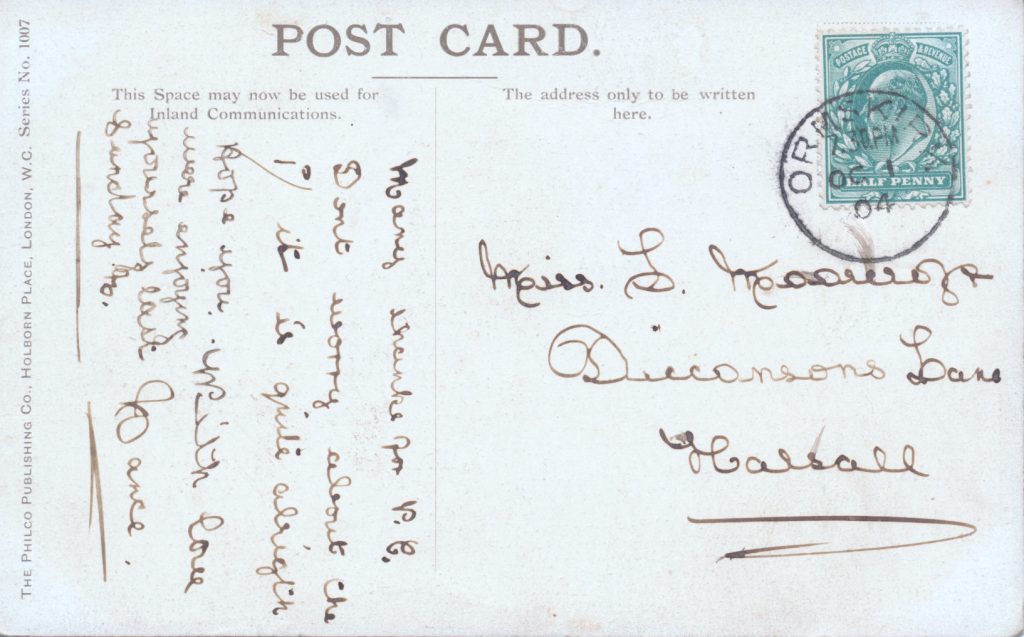 POST CARD.
This Space may now be used for
Inland Communications.
The address only to be written
here.
POSTAGE & REVENUE
HALF PENNY
ORMSKIRK
OC 1
04
Many thanks for P.C.
Dont worry about the
it is quite alright
Hope you
were enjoying
yourself last
Sunday
With Love
Nance.
Miss. L. Moorcroft
Diccansons Lane
Halsall
THE PHILCO PUBLISHING CO., HOLBORN PLACE, LONDON, W.C. Series No. 1007